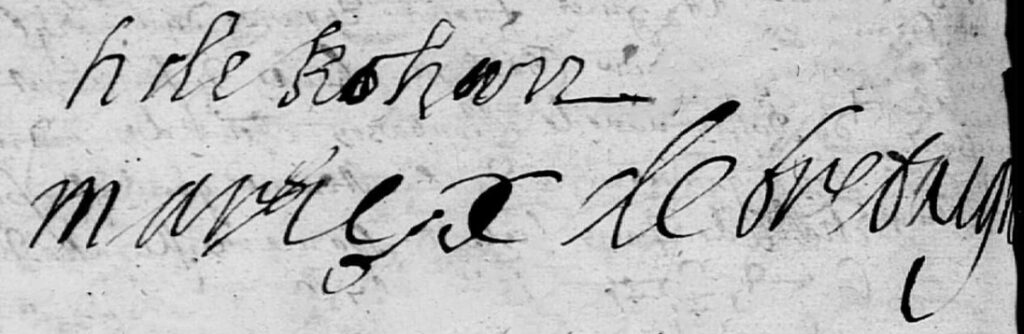 h de Rohan
marie de bretaign